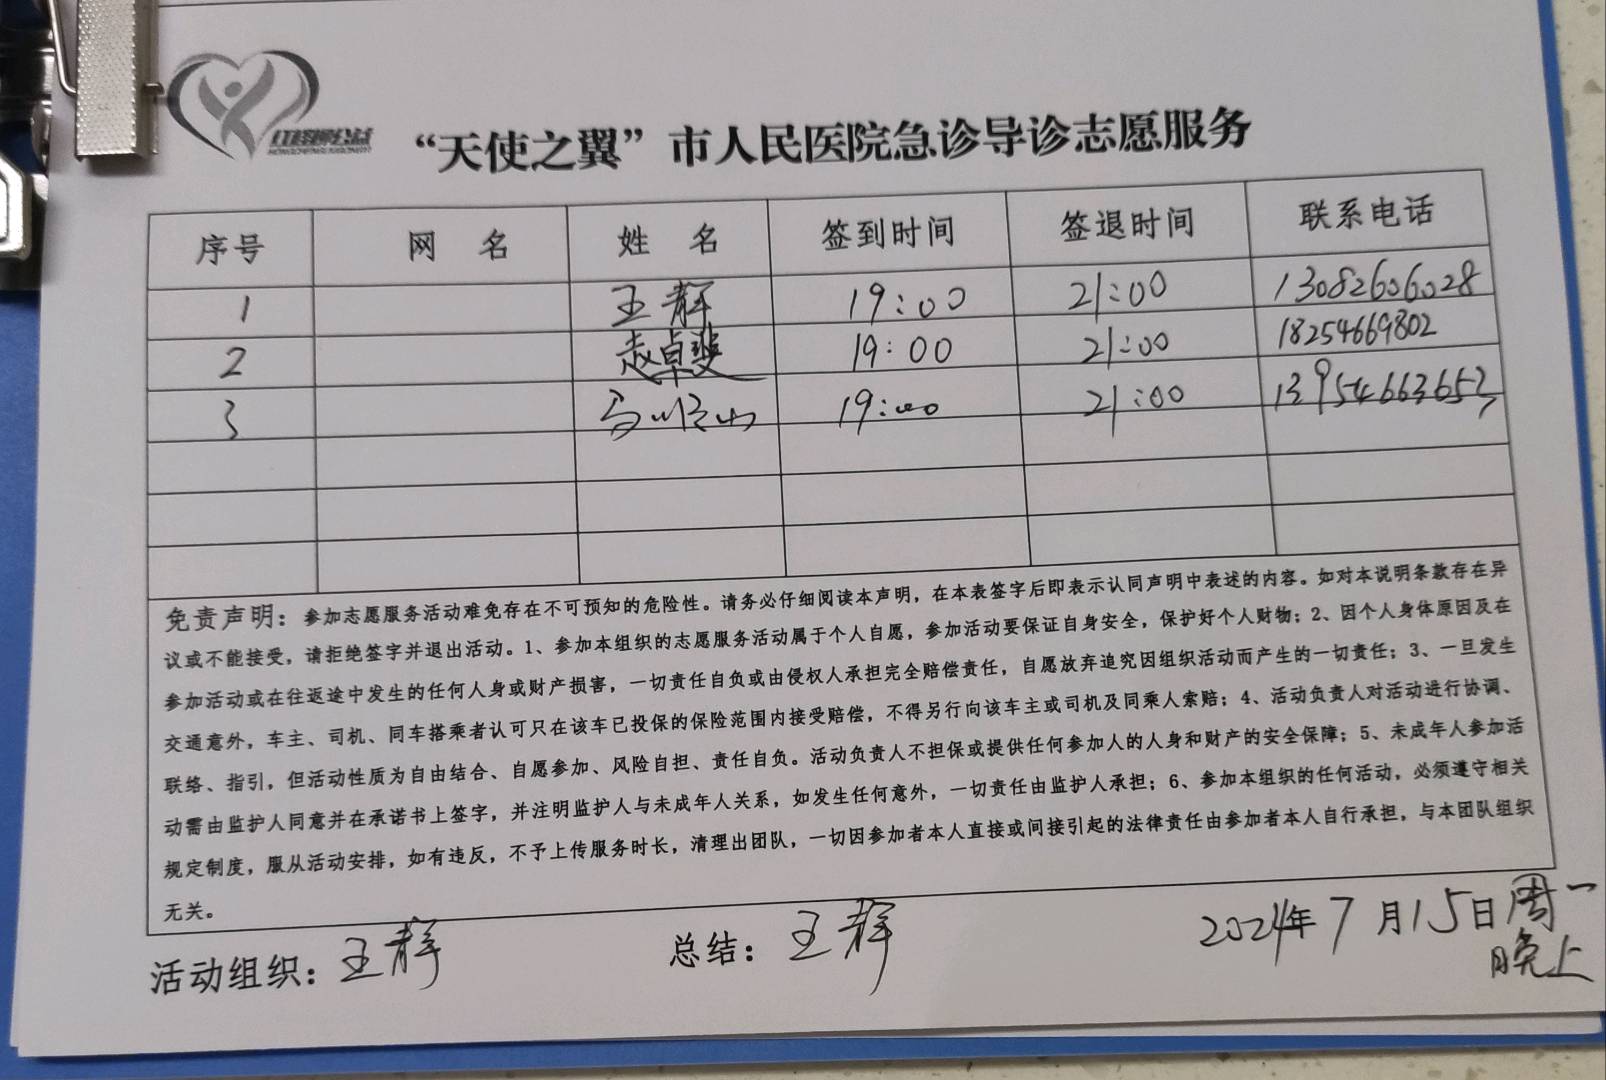 红橙缘公益
“天使之翼”市人民医院急诊导诊志愿服务
序号 网 名 姓 名 签到时间 签退时间 联系电话
1 王静 19:00 21:00 13082606028
2 赵卓斐 19:00 21:00 18254669802
3 马顺山 19:00 21:00 13954663653
免责声明：参加志愿服务活动难免存在不可预知的危险性。请务必仔细阅读本声明，在本表签字后即表示认同声明中表述的内容。如对本说明条款存在异
议或不能接受，请拒绝签字并退出活动。1、参加本组织的志愿服务活动属于个人自愿，参加活动要保证自身安全，保护好个人财物；2、因个人身体原因及在
参加活动或在往返途中发生的任何人身或财产损害，一切责任自负或由侵权人承担完全赔偿责任，自愿放弃追究因组织活动而产生的一切责任；3、一旦发生
交通意外，车主、司机、同车搭乘者认可只在该车已投保的保险范围内接受赔偿，不得另行向该车主或司机及同乘人索赔；4、活动负责人对活动进行协调、
联络、指引，但活动性质为自由结合、自愿参加、风险自担、责任自负。活动负责人不担保或提供任何参加人的人身和财产的安全保障；5、未成年人参加活
动需由监护人同意并在承诺书上签字，并注明监护人与未成年人关系，如发生任何意外，一切责任由监护人承担；6、参加本组织的任何活动，必须遵守相关
规定制度，服从活动安排，如有违反，不予上传服务时长，清理出团队，一切因参加者本人直接或间接引起的法律责任由参加者本人自行承担，与本团队组织
无关。
活动组织：王静 总结：王静 2024年7月15日周一
晚上